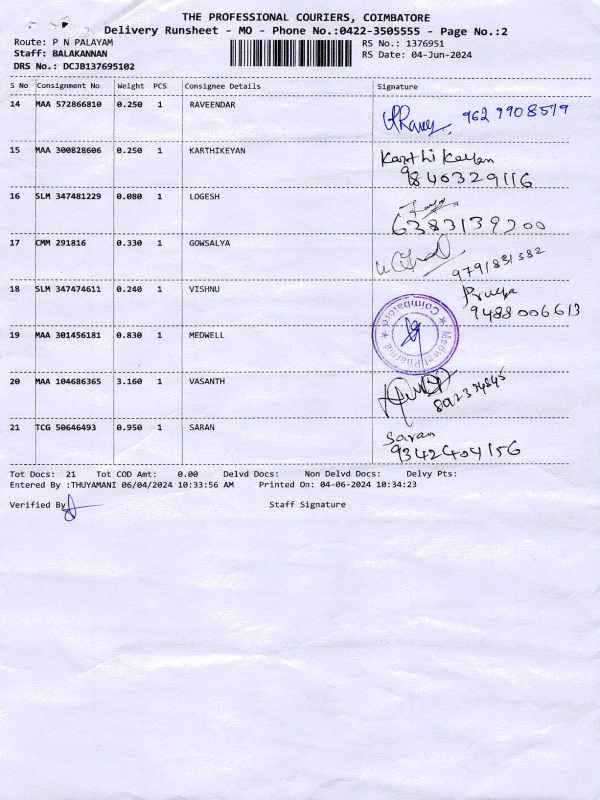 THE PROFESSIONAL COURIERS, COIMBATORE
Delivery Runsheet - MO - Phone No.:0422-3505555 - Page No.:2
Route: P N PALAYAM RS No.: 1376951
Staff: BALAKANNAN RS Date: 04-Jun-2024
DRS No.: DCJB137695102
S No Consignment No Weight PCS Consignee Details Signature
14 MAA 572866810 0.250 1 RAVEENDAR 9629908579
15 MAA 300828606 0.250 1 KARTHIKEYAN Karthi Keyan
9840329116
16 SLM 347481229 0.080 1 LOGESH
6383139200
17 CMM 291816 0.330 1 GOWSALYA
9791831382
18 SLM 347474611 0.240 1 VISHNU
9488006613
19 MAA 301456181 0.830 1 MEDWELL Coimbatore
20 MAA 104686365 3.160 1 VASANTH
21 TCG 50646493 0.950 1 SARAN Saran
9342404156
Tot Docs: 21 Tot COD Amt: 0.00 Delvd Docs: Non Delvd Docs: Delvy Pts:
Entered By :THUYAMANI 06/04/2024 10:33:56 AM Printed On: 04-06-2024 10:34:23
Verified By Staff Signature